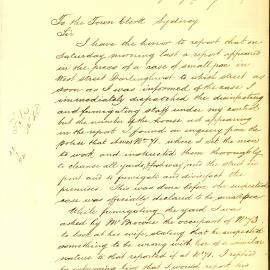 To the Town Clerk Sydney
Sir
I have the honor to report that on
Saturday morning last a report appeared
in the press of a case of small pox in
West Street Darlinghurst to which street as
soon as I was informed of the case I
immediately dispatched the disinfecting
and fumigating staff under my control
but the number of the house not appearing
in the report I found on enquiry from the
Police that it was No 71. where I set the men
to work and instructed them thoroughly
to cleanse all gully shafts and the street in
front and to fumigate and disinfect the
premises. This was done before the suspected
case was officially declared to be small pox
While fumigating the yard I was
asked by Mr Browne the occupant of No 73
to look at his wife, stating that he suspected
something to be wrong with her of a similar
nature to that reported of at No 71. I replied
by informing him that I would report his